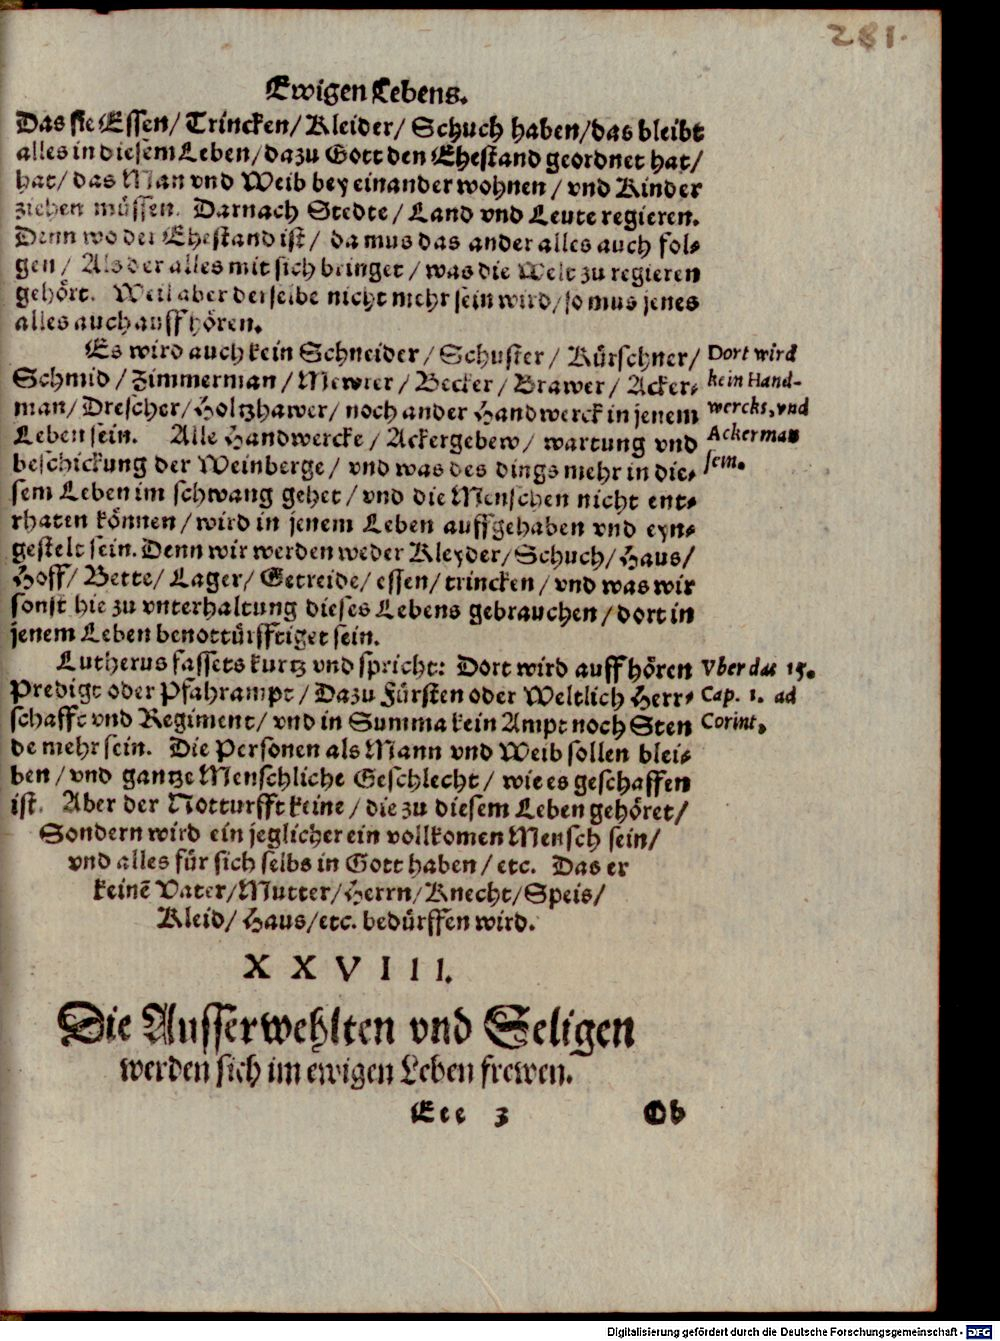 281.
Ewigen Lebens.
Das sie Essen/ Trincken/ Kleider/ Schuch haben/das bleibt
alles in diesem Leben/dazu Gott den Ehestand geordnet hat/
hat/ das Man vnd Weib bey einander wohnen/ vnd Kinder
ziehen müssen. Darnach Stedte/ Land vnd Leute regieren.
Denn wo der Ehestand ist/ da mus das ander alles auch fol-
gen/ Als der alles mit sich bringet/ was die Welt zu regieren
gehört. Weil aber derselbe nicht mehr sein wird/so mus jenes
alles auch auffhören.
Es wird auch kein Schneider/ Schuster/ Kürschner/
Schmid/ Zimmerman/ Mewrer/ Becker/ Brawer/ Acker-
man/ Drescher/ Holtzhawer/ noch ander Handwerck in jenem
Leben sein. Alle Handwercke/ Ackergebew/ wartung vnd
beschickung der Weinberge/ vnd was des dings mehr in die-
sem Leben im schwang gehet/ vnd die Menschen nicht ent-
rhaten können/ wird in jenem Leben auffgehaben vnd eyn-
gestelt sein. Denn wir werden weder Kleyder/ Schuch/ Haus/
Hoff/ Bette/ Lager/ Getreide/ essen/ trincken/ vnd was wir
sonst hie zu vnterhaltung dieses Lebens gebrauchen/ dort in
jenem Leben benottürfftiget sein.
Dort wird
kein Hand-
wercks, vnd
Ackerman
sein.
Lutherus fassets kurtz vnd spricht: Dort wird auffhören
Predigt oder Pfahrampt/ Dazu Fürsten oder Weltlich Herr-
schafft vnd Regiment/ vnd in Summa kein Ampt noch Sten
de mehr sein. Die Personen als Mann vnd Weib sollen blei-
ben/ vnd gantze Menschliche Geschlecht/ wie es geschaffen
ist. Aber der Notturfft keine/ die zu diesem Leben gehöret/
Sondern wird ein jeglicher ein vollkomen Mensch sein/
vnd alles für sich selbs in Gott haben/ etc. Das er
keinē Vater/ Mutter/ Herrn/ Knecht/ Speis/
Kleid/ Haus/etc. bedürffen wird.
Vber das 15.
Cap. 1. ad
Corint.
XXVIII.
Die Ausserwehlten vnd Seligen
werden sich im ewigen Leben frewen.
Eee 3 Ob
Digitalisierung gefördert durch die Deutsche Forschungsgemeinschaft - DFG